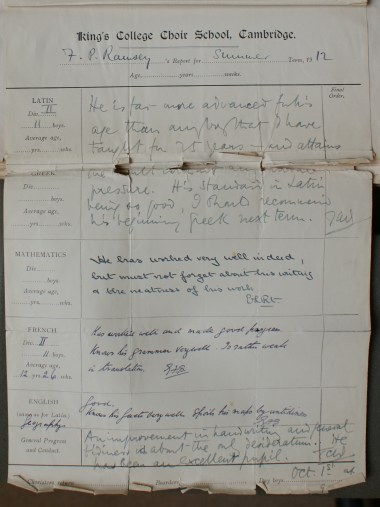 King's College Choir School, Cambridge.
F. P. Ramsey 's Report for Summer Term, 1912
Age, years, weeks.
LATIN
Div. II
11 boys.
Average age,
yrs. wks.
Final Order.
He is far more advanced for his
age than any boy that I have
taught for 25 years – and attains
the result without any
pressure. His standard in Latin
being so good, I shall recommend
his beginning Greek next term.
GREEK
Div.
boys.
Average age,
yrs. wks.
MATHEMATICS
Div.
boys.
Average age,
yrs. wks.
He has worked very well indeed,
but must not forget about his writing
& the neatness of his work
FRENCH
Div. II
11 boys.
Average age,
12 yrs. 26 wks.
Has worked well and made good progress
Knows his grammar very well. Is rather weak
in translation
ENGLISH
(same as for Latin)
Geography
Good.
Knows his facts very well. Spoils his maps by untidiness
General Progress and Conduct.
An improvement in handwriting and personal
tidiness is about the only desideratum. He
has been an excellent pupil.
Oct. 1st